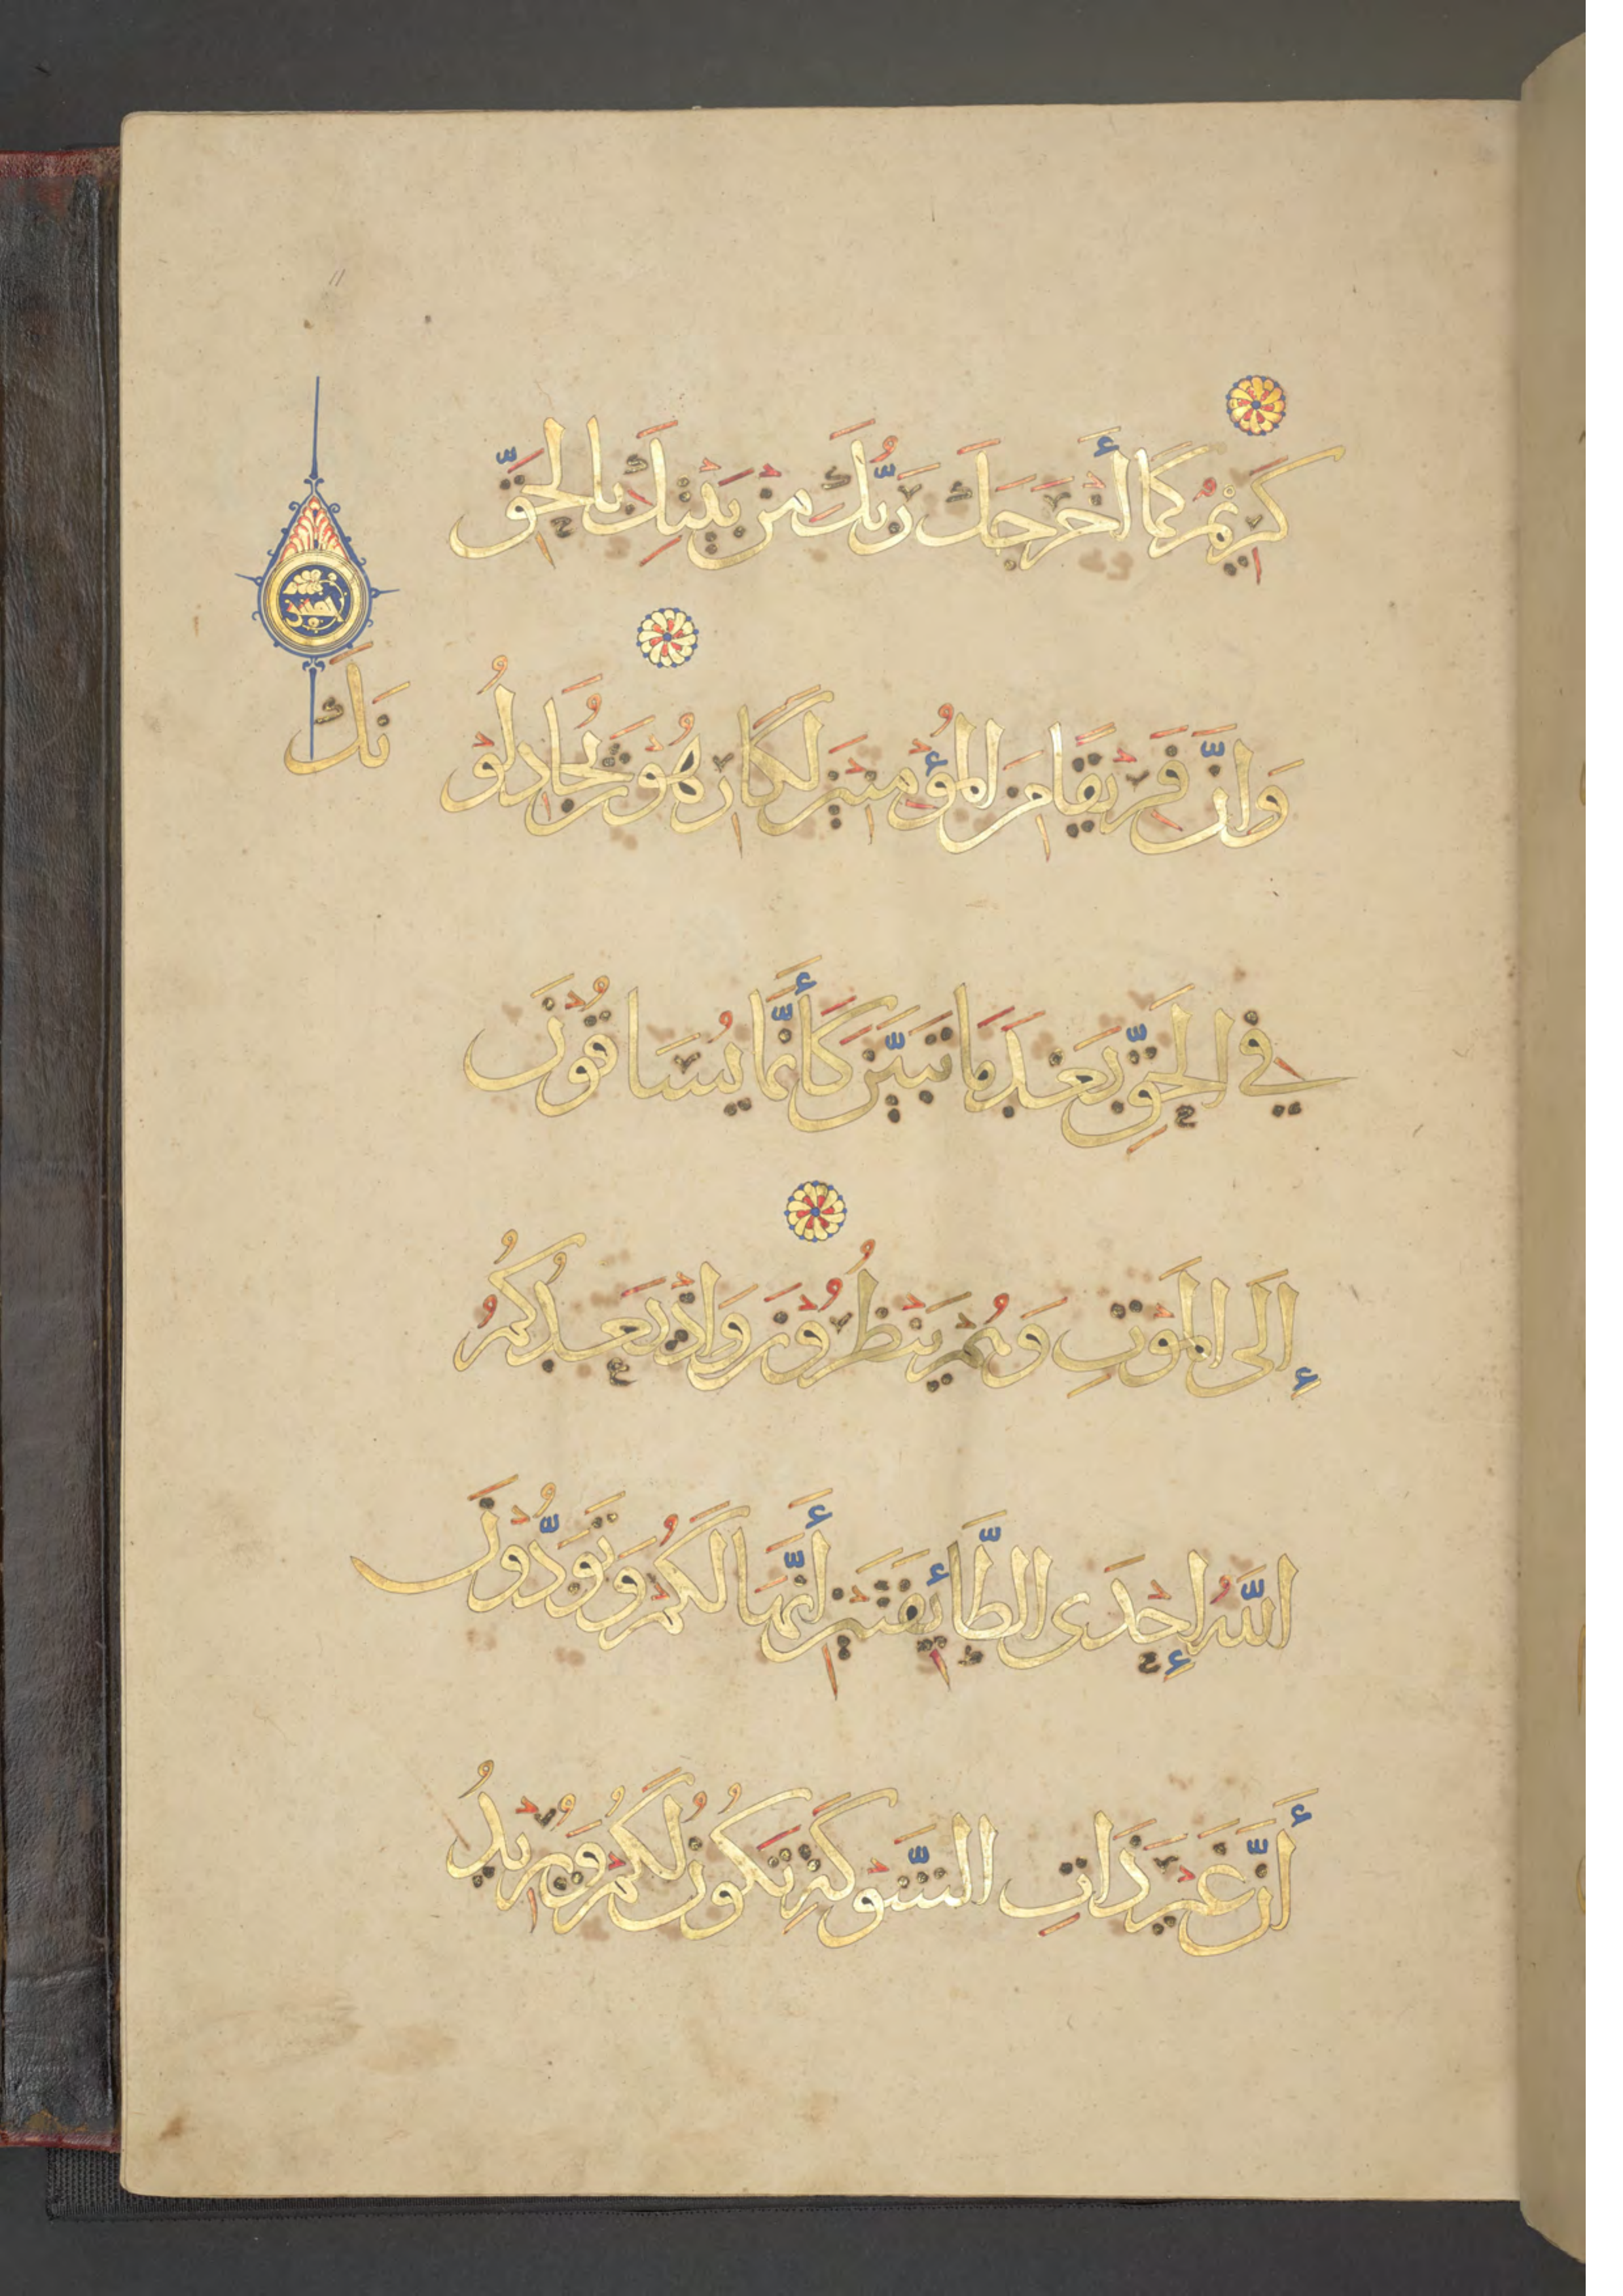 كَرِيمٌ كَمَا أَخْرَجَكَ رَبُّكَ مِنْ بَيْتِكَ بِالْحَقِّ
وَإِنَّ فَرِيقًا مِنَ الْمُؤْمِنِينَ لَكَارِهُونَ يُجَادِلُو
نَكَ
فِي الْحَقِّ بَعْدَ مَا تَبَيَّنَ كَأَنَّمَا يُسَاقُونَ
إِلَى الْمَوْتِ وَهُمْ يَنْظُرُونَ وَإِذْ يَعِدُكُمُ
اللَّهُ إِحْدَى الطَّائِفَتَيْنِ أَنَّهَا لَكُمْ وَتَوَدُّونَ
أَنَّ غَيْرَ ذَاتِ الشَّوْكَةِ تَكُونُ لَكُمْ وَيُرِيدُ